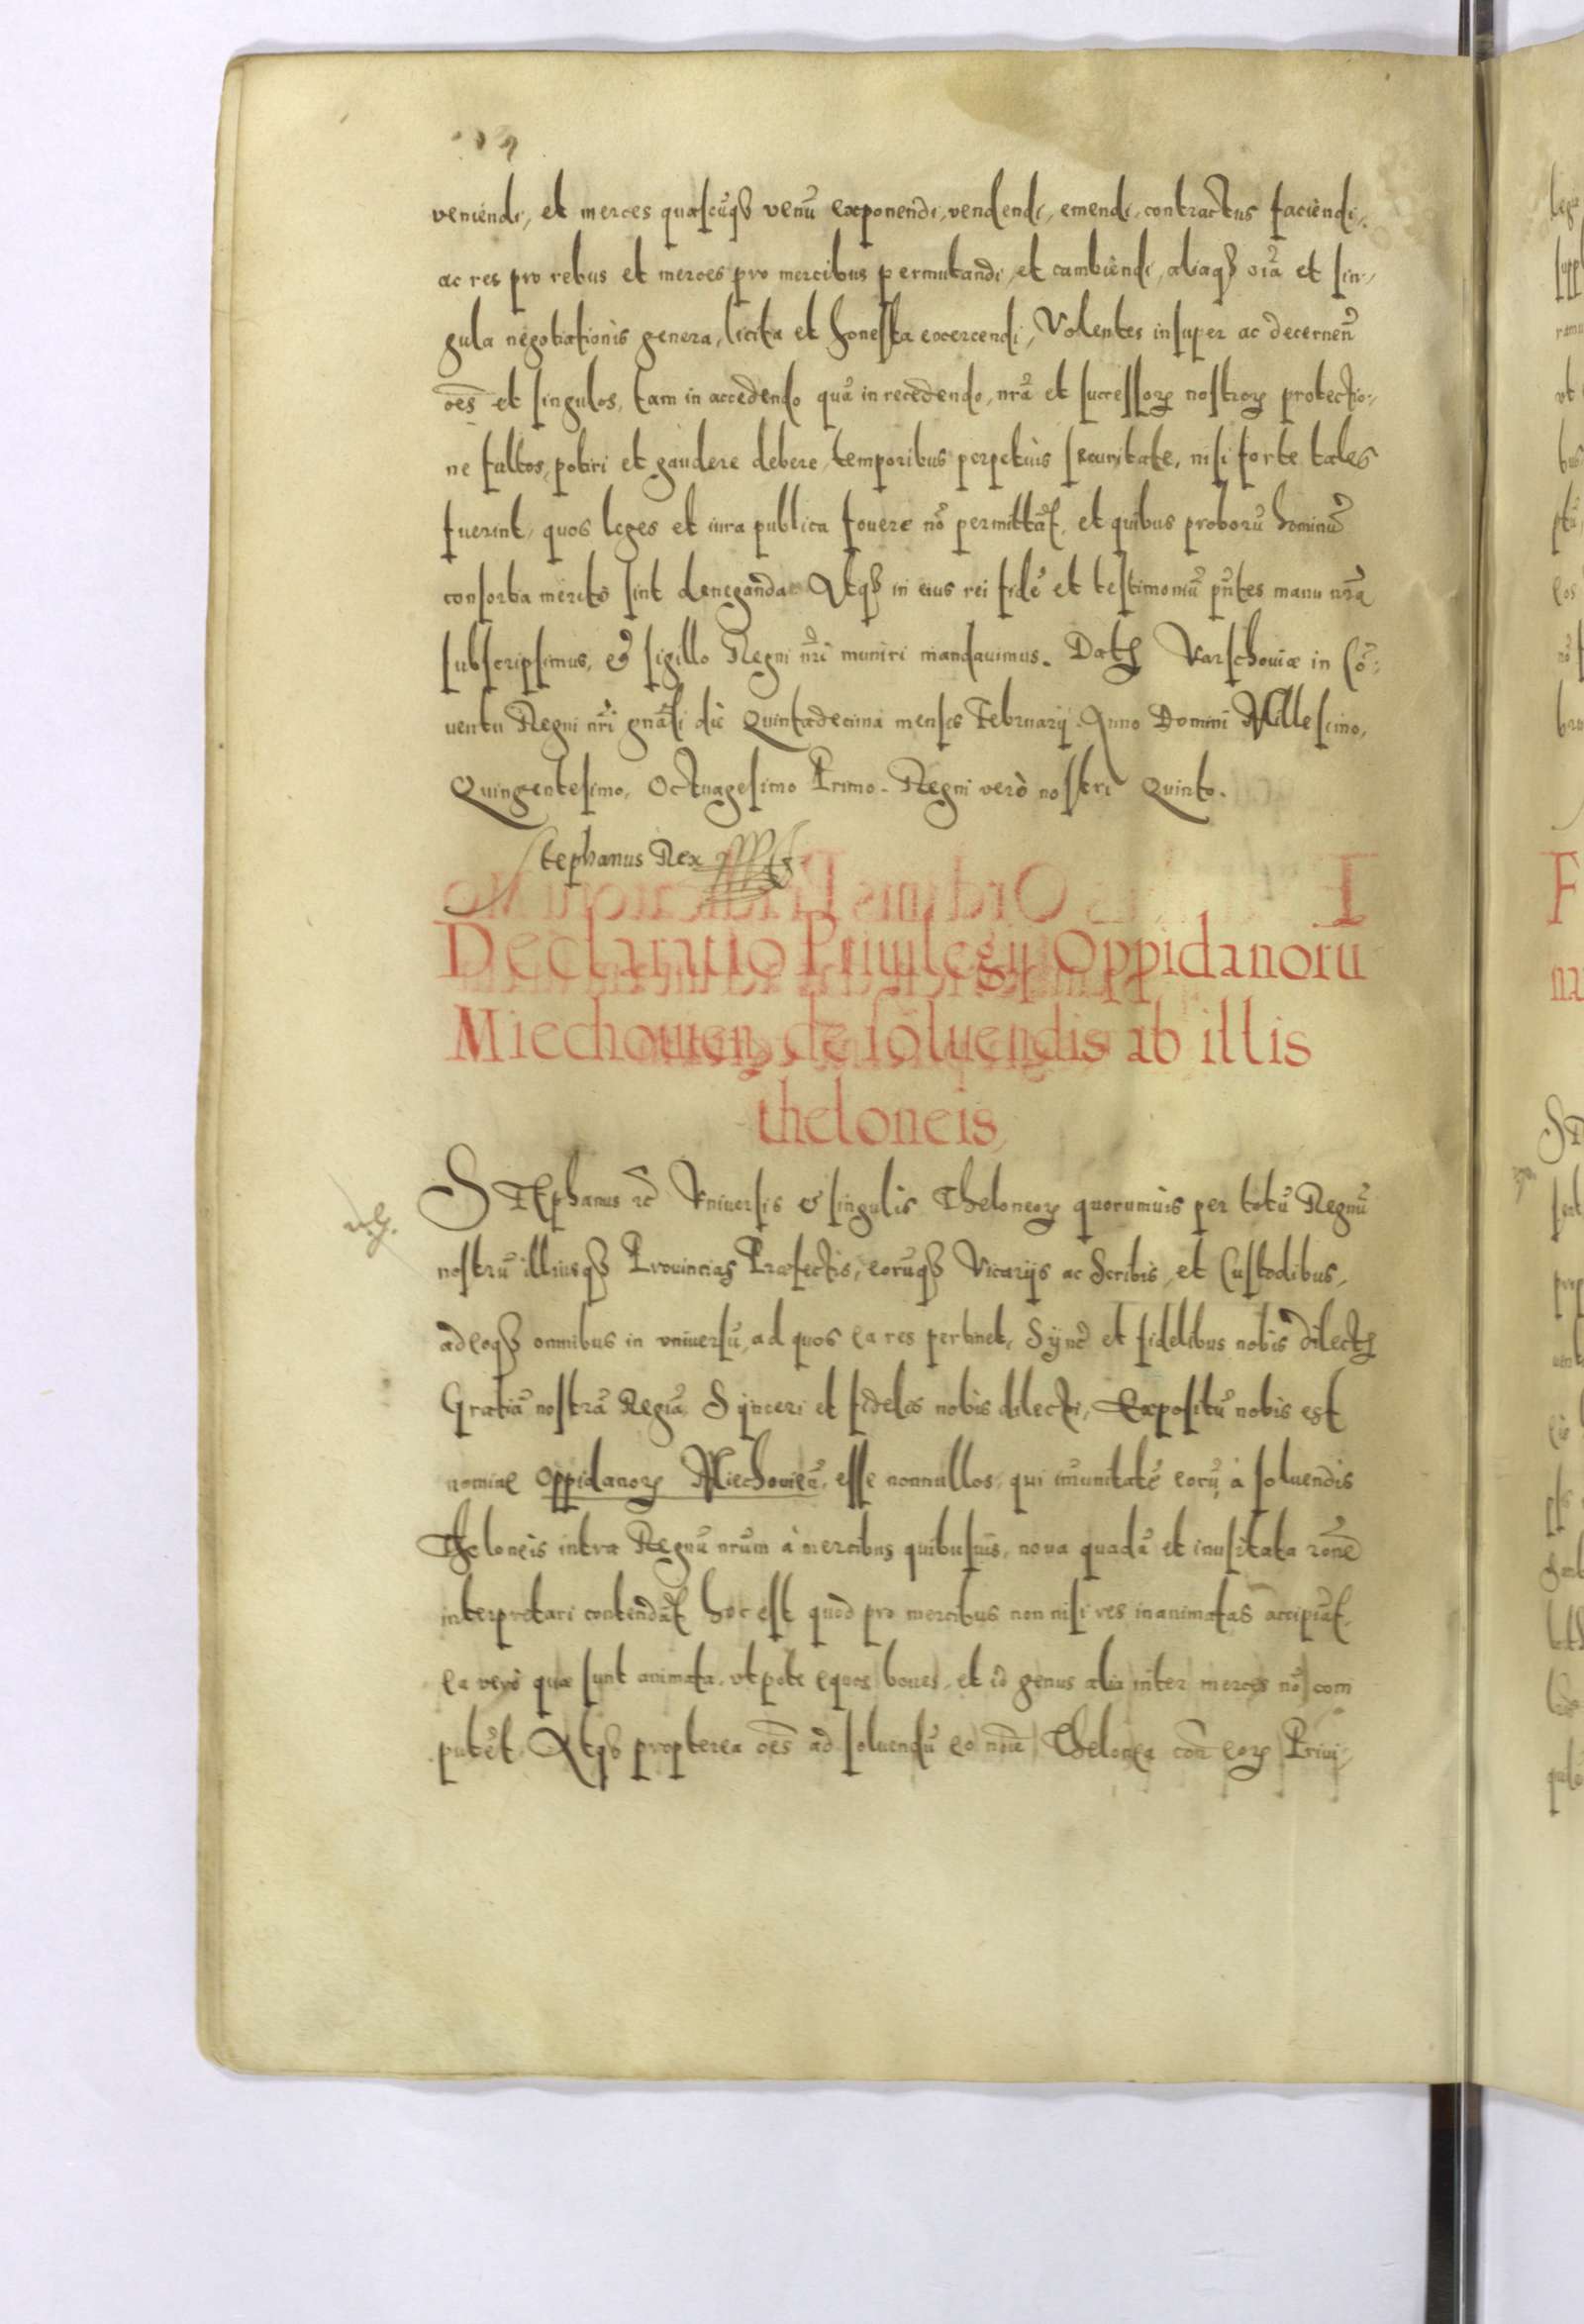 veniendi, et merces quascūqȝ venū exponendi, vendendi, emendi, contractus faciendi,
ac res pro rebus et merces pro mercibus permutandi, et cambiendi, aliaqȝ oīa et sin-
gula negotiationis genera, licita et honesta excercendi, Volentes insuper ac decernen̄
oēs et singulos, tam in accedendo quā in recedendo, nrā et successorꝝ nostrorꝝ protectio-
ne fultos, potiri et gaudere debere, temporibus perpetuis securitate, nisi forte tales
fuerint, quos leges et iura publica fouere nō permittāt, et quibus proborū hominū
consortia merito sint deneganda. Atqȝ in eius rei fidē et testimoniū pn̄tes manu nrā
subscripsimus, et sigillo Regni nrī muniri mandauimus. Datꝭ Varschouiæ in Cō-
uentu Regni nrī gnāli die Quintadecima mensis Februarij Anno Domini Millesimo,
Quingentesimo, Octuagesimo Primo. Regni verò nostri Quinto.
Stephanus Rex
Declaratio Priuilegij Oppidanorū
Miechouien̄ de soluendis ab illis
theloneis,
STEphanus ꝛc̄ Vniuersis et singulis Theloneorꝝ quorumuis per totū Regnū
nostrū illiusqȝ Prouincias Præfectis, eorūqȝ Vicarijs ac Scribis, et Custodibus,
adeoqȝ omnibus in vniuersū, ad quos ea res pertinet, Sync̄ et fidelibus nobis dilectꝭ
Gratiā nostrā Regiā. Synceri et fideles nobis dilecti, Expositū nobis est
nomine Oppidanorꝝ Miechouien̄, esse nonnullos, qui im̄unitatē eorū, à soluendis
Theloneis intra Regnū nrum à mercibus quibusuis, noua quadā et inusitata rōne
interpretari contendāt, hoc est quòd pro mercibus non nisi res inanimatas accipiāt,
ea verò quæ sunt animata, vt pote equos boues, et id genus alia inter merces nō com
putēt, Atqȝ propterea oēs ad soluendū eo noīe Thelonea contr̄ eorꝝ Priui-